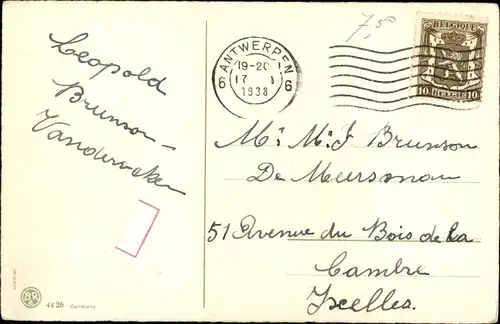 Leopold
Brunson -
Vanderaacken
7,5
ANTWERPEN
6 6
19-20
17 I
1938
BELGIQUE
10 BELGIE 10
Mr Mr J Brunson
De Meersman
51 Avenue du Bois de la
Cambre
Ixelles.
AR
4426 Germany